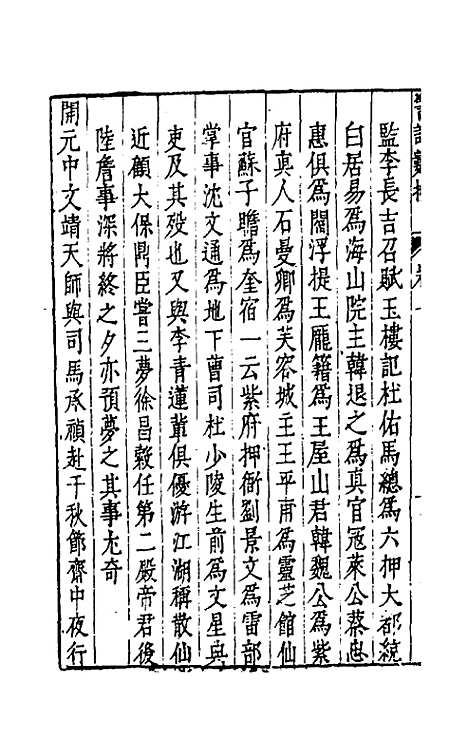 監李長吉召賦玉樓記杜佑馬總爲六押大都統
白居易爲海山院主韓退之爲真官冦萊公蔡忠
惠俱爲閻浮提王龎籍爲王屋山君韓魏公爲紫
府真人石曼卿爲芙容城主王平甫爲靈芝館仙
官蘇子瞻爲奎宿一云紫府押衙劉景文爲雷部
掌事沈文通爲地下曹司杜少陵生前爲文星典
吏及其殁也又與李青蓮軰俱優游江湖稱散仙
近顧大保鼎臣嘗三夢徐昌穀任第二殿帝君後
陸詹事深將終之夕亦預夢之其事尤奇
開元中文靖天師與司馬承禎赴千秋節齋中夜行